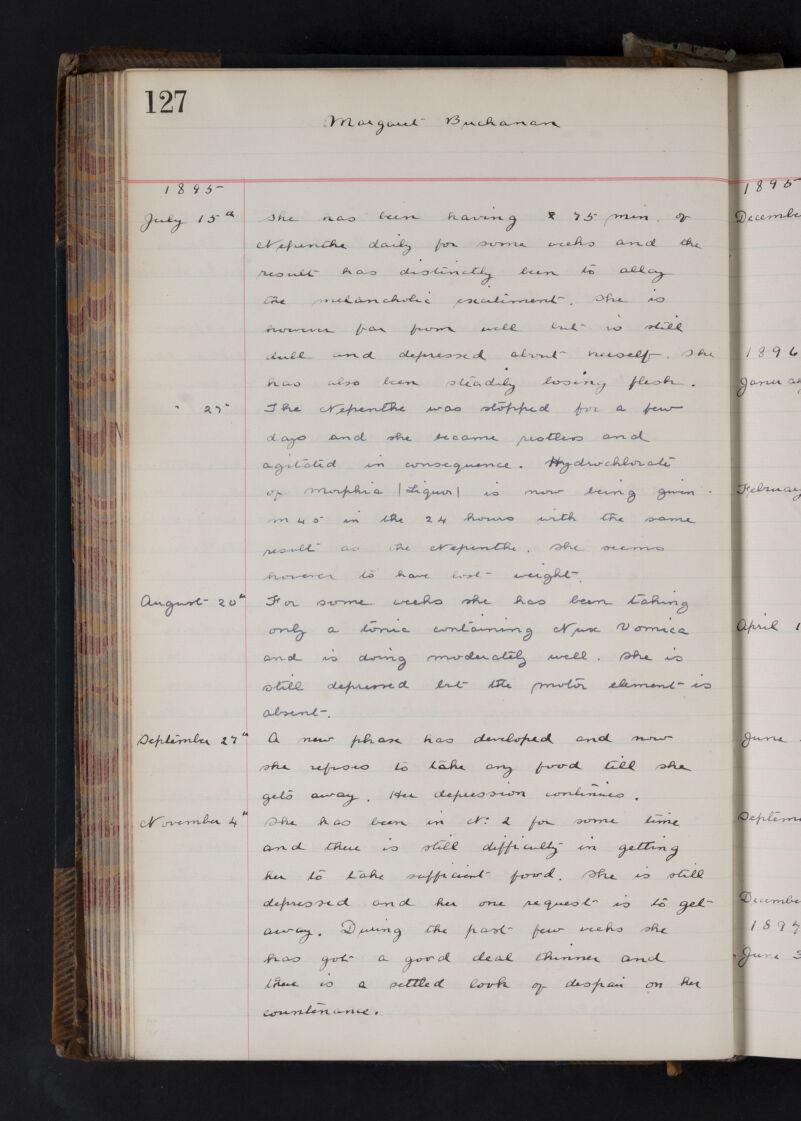 127
Margaret Buchanan
1895
July 15th She has been having 75 min. of
Nepenthe daily for some weeks and the
result has distinctly been to allay
the melancholic excitement. She is
however far from well but is still
dull and depressed about herself. She
has also been steadily losing flesh.
" 27th The Nepenthe was stopped for a few
days and she became restless and
agitated in consequence. Hydrochlorate
of Morphia |Liquor| is now being given
m 45 in the 24 hours with the same
result as the Nepenthe. She seems
however to have lost weight.
August 20th For some weeks she has been taking
only a tonic containing Nux Vomica
and is doing moderately well. She is
still depressed but the motor element is
absent.
September 27th A new phase has developed and now
she refuses to take any food till she
gets away. Her depression continues.
November 4th She has been in No. 2 for some time
and there is still difficulty in getting
her to take sufficient food. She is still
depressed and her one request is to get
away. During the past few weeks she
has got a good deal thinner and
there is a settled look of despair on her
countenance.
1895
Decembe
1896
Januar
Februar
April 1
June
Septem
Decembe
1897
June 3